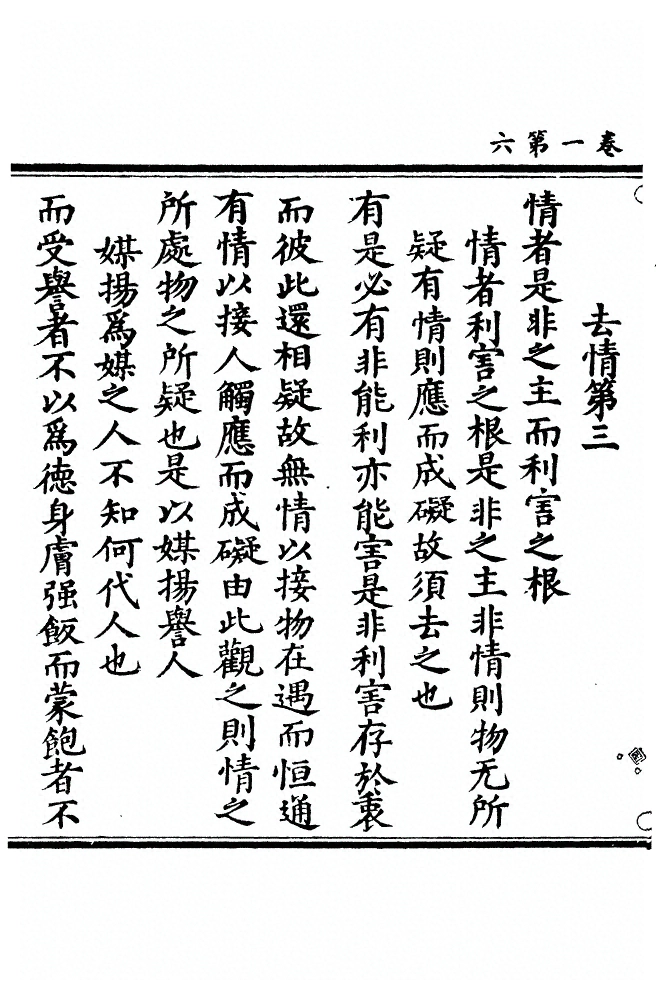 卷一第六
去情第三
情者是非之主而利害之根
情者利害之根是非之主非情則物无所
疑有情則應而成礙故須去之也
有是必有非能利亦能害是非利害存於衷
而彼此還相疑故無情以接物在遇而恒通
有情以接人觸應而成礙由此觀之則情之
所處物之所疑也是以媒揚譽人
媒揚爲媒之人不知何代人也
而受譽者不以爲德身膚强飯而蒙飽者不